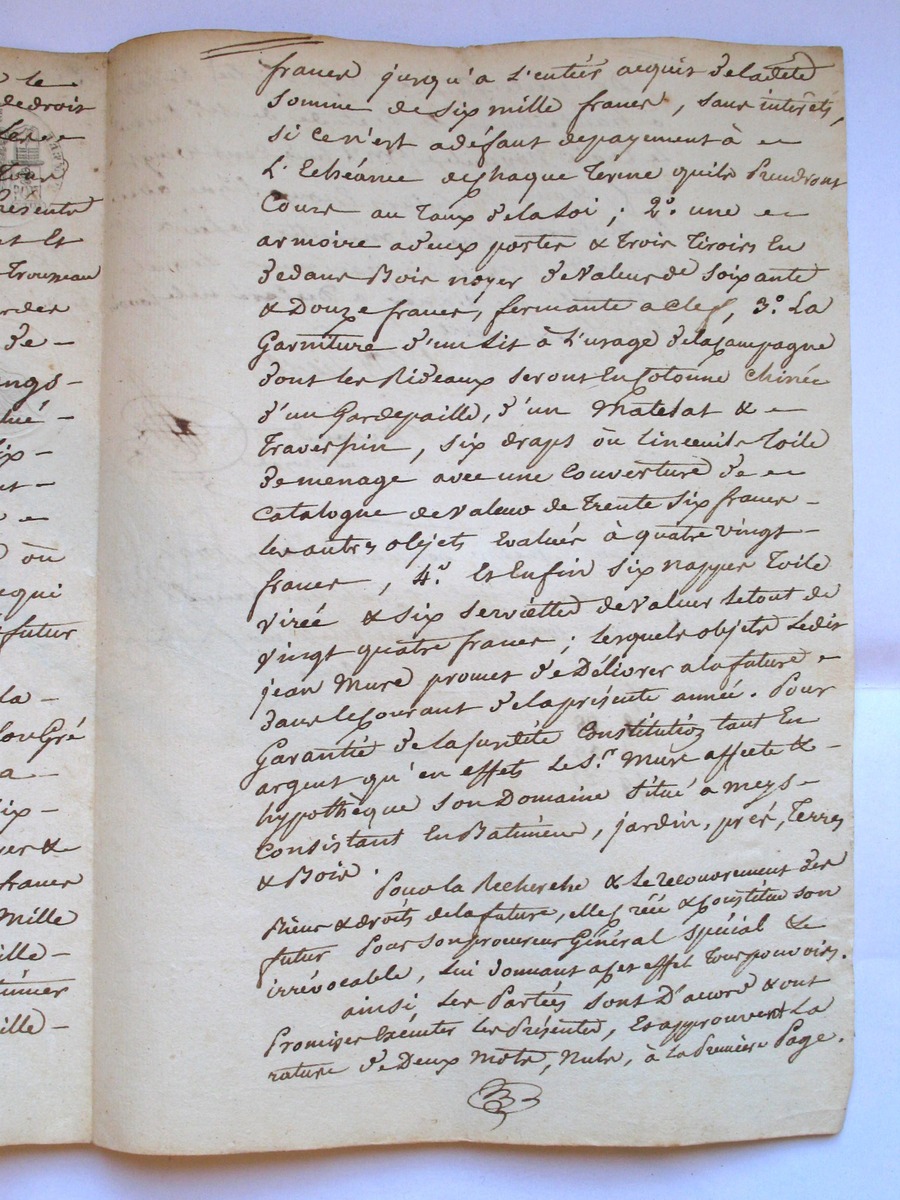 le
de droit
présente
et Et
Trouneau
de -
ings -
ix -
ou
futur
la -
ix -
francs
Mille
ille -
ille -
francs jusqu'a L'entier acquit de ladite
Somme de Six mille francs, sans intérêts,
si ce n'est a défaut depayement à
L'Echéance de chaque Terme quils Prendront
Cours au Taux de la Loi ; 2° une
armoire a deux portes & trois Tiroirs En
dedans Bois noyer de Valeur de Soixante
& Douze francs, fermante a clef, 3° La
Garniture d'un Lit à L'usage de la Campagne
dont les Rideaux seront En Cotonne Chinée
d'un Gardepaille, d'un Matelat &
Traverpin, six draps ou Linceuils Toile
de menage avec une Couverture de
Catalogne de Valeur de Trente Six francs -
les autres objets Evalués à quatre vingt -
francs, 4° Et Enfin six nappes Toile
virée & six Serviettes de Valeur Le tout de
vingt quatre francs ; Lesquels objets Ledit
jean Mure promet de Délivrer a la future
dans le Courant de la présente année. Pour
Garantie de la susdite Constitution tant En
argent qu'en effets Le Sr. Mure affecte & -
hypothèque son Domaine Situé a meys -
Consistant En Batiments, jardin, prés, Terres
& Bois.
Pour la Recherche & Le recouvrement des
Biens & droits de la future, elle Créé & Constitue son
futur Pour son procureur Général Spécial &
irrévocable, Lui donnant a cet effet Tous pouvoirs.
ainsi, Les Parties sont D'accord & ont
Promis Exécuter les Présentes, Et approuvent La
rature de Deux mots, nuls, à La Première Page.